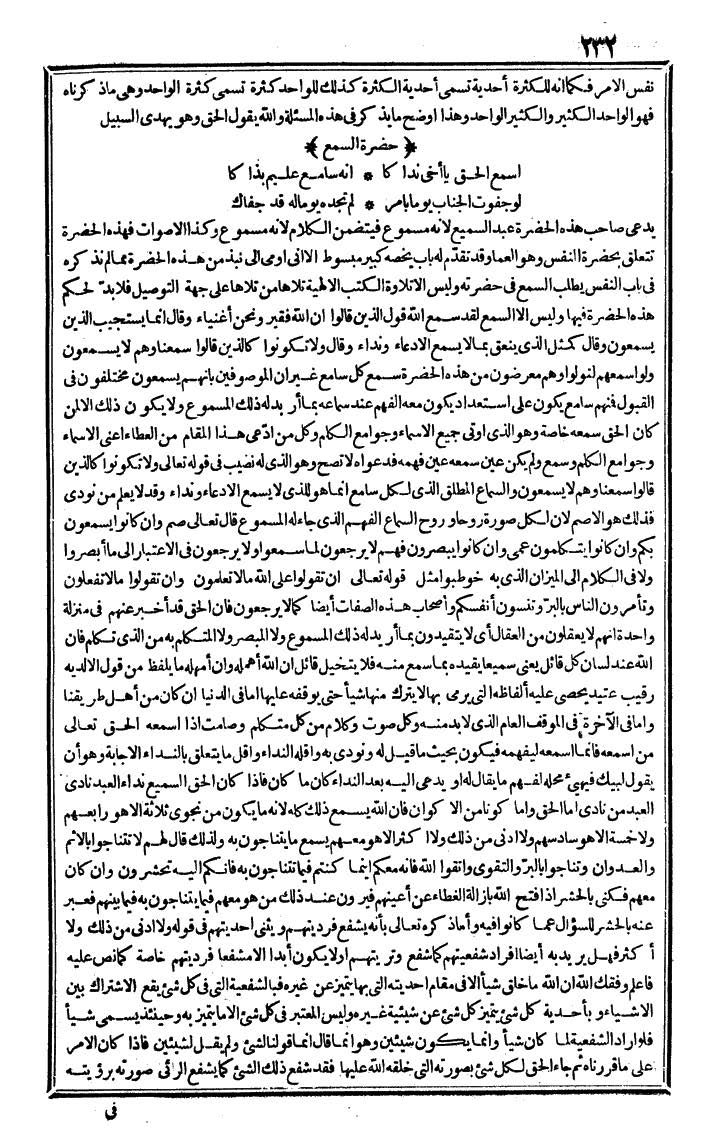 ٢٣٢
نفس الامر فكما انه للكثرة أحدية تسمى أحدية الكثرة كذلك للواحد كثرة تسمى كثرة الواحد وهى ماذكرناه
فهو الواحد الكثير والكثير الواحد وهذا اوضح ما يذكر فى هذه المسئلة والله يقول الحق وهو يهدى السبيل
﴿ حضرة السمع ﴾
اسمع الحق يا أخى نداكا * انه سامع عليم بذاكا
لو جفوت الجناب يوما بامر * لم تجده يوما له قد جفاك
يدعى صاحب هذه الحضرة عبد السميع لانه مسموع فيتضمن الكلام لانه مسموع وكذا الاصوات فهذه الحضرة
تتعلق بحضرة النفس وهو العما وقد تقدّم له باب يخصه كبير مبسوط الا انى اومى الى نبذ من هذه الحضرة مما لم نذكره
فى باب النفس يطلب السمع فى حضرته وليس الا تلاوة الكتب الالهية تلاها من تلاها على جهة التوصيل فلا بدّ لحكم
هذه الحضرة فيها وليس الا السمع لقد سمع الله قول الذين قالوا ان الله فقير ونحن أغنياء وقال انما يستجيب الذين
يسمعون وقال كمثل الذى ينعق بما لا يسمع الا دعاء ونداء وقال ولا تكونوا كالذين قالوا سمعنا وهم لا يسمعون
ولو اسمعهم لتولوا وهم معرضون من هذه الحضرة سمع كل سامع غير ان الموصوفين بانهم يسمعون مختلفون فى
القبول فمنهم سامع يكون على استعداد يكون معه الفهم عند سماعه بما أريد له ذلك المسموع ولا يكون ذلك الا لمن
كان الحق سمعه خاصة وهو الذى اوتى جميع الاسماء وجوامع الكلم وكل من ادّعى هذا المقام من العطاء اعنى الاسماء
وجوامع الكلم وسمع ولم يكن عين سمعه عين فهمه فدعواه لا تصح وهو الذى له نصيب فى قوله تعالى ولا تكونوا كالذين
قالوا سمعنا وهم لا يسمعون والسماع المطلق الذى لكل سامع انما هو للذى لا يسمع الا دعاء ونداء وقد لا يعلم من نودى
فذلك هو الاصم لان لكل صورة روحا وروح السماع الفهم الذى جاء له المسموع قال تعالى صم وان كانوا يسمعون
بكم وان كانوا يتكلمون عمى وان كانوا يبصرون فهم لا يرجعون لما سمعوا ولا يرجعون فى الاعتبار الى ما أبصروا
ولا فى الكلام الى الميزان الذى به خوطبوا مثل قوله تعالى ان تقولوا على الله مالا تعلمون وان تقولوا مالا تفعلون
وتأمرون الناس بالبرّ وتنسون أنفسكم وأصحاب هذه الصفات أيضا كما لا يرجعون فان الحق قد أخبر عنهم فى منزلة
واحدة انهم لا يعقلون من العقال أى لا يتقيدون بما أريد له ذلك المسموع ولا المبصر ولا المتكلم به من الذى تكلم فان
الله عند لسان كل قائل يعنى سميعا يقيده بما سمع منه فلا يتخيل قائل ان الله أهمله وان أمهله ما يلفظ من قول الا لديه
رقيب عتيد يحصى عليه ألفاظه التى يرمى بها لا يترك منها شيأ حتى يوقفه عليها اما فى الدنيا ان كان من أهل طريقنا
واما فى الآخرة فى الموقف العام الذى لا بد منه وكل صوت وكلام من كل متكلم وصامت اذا اسمعه الحق تعالى
من اسمعه فانما اسمعه ليفهمه فيكون بحيث ما قيل له ونودى به واقله النداء واقل ما يتعلق بالنداء الاجابة وهو أن
يقول لبيك فيهيئ محله لفهم ما يقال له او يدعى اليه بعد النداء كان ما كان فاذا كان الحق السميع نداء العبد نادى
العبد من نادى اما الحق واما كونا من الاكوان فان الله يسمع ذلك كله لانه ما يكون من نجوى ثلاثة الا هو رابعهم
ولا خمسة الا هو سادسهم ولا ادنى من ذلك ولا اكثر الا هو معهم يسمع ما يتناجون به ولذلك قال لهم لا تتناجوا بالاثم
والعدوان وتناجوا بالبرّ والتقوى واتقوا الله فانه معكم اينما كنتم فيما تتناجون به فانكم اليه تحشرون وان كان
معهم فكنى بالحشر اذا فتح الله بازالة الغطاء عن أعينهم فيرون عند ذلك من هو معهم فيما يتناجون به فيما بينهم فعبر
عنه بالحشر للسؤال عما كانوا فيه وأما ذكره تعالى بأنه يشفع فرديتهم ويثنى احديتهم فى قوله ولا ادنى من ذلك ولا
أكثر فهل يريد به أيضا افراد شفعيتهم كما شفع وتريتهم او لا يكون أبدا الا مشفعا فرديتهم خاصة كما نص عليه
فاعلم وفقك الله ان الله ما خلق شيأ الا فى مقام احديته التى بها يتميز عن غيره فبالشفعية التى فى كل شئ يقع الاشتراك بين
الاشياء وبأحدية كل شئ يتميز كل شئ عن شيئية غيره وليس المعتبر فى كل شئ الا ما يتميز به وحينئذ يسمى شيأ
فلو اراد الشفعية لما كان شيأ وانما يكون شيئين وهو انما قال انما قولنا لشئ ولم يقل لشيئين فاذا كان الامر
على ما قررناه ثم جاء الحق لكل شئ بصورته التى خلقه الله عليها فقد شفع ذلك الشئ كما يشفع الرائى صورته برؤيته
فى